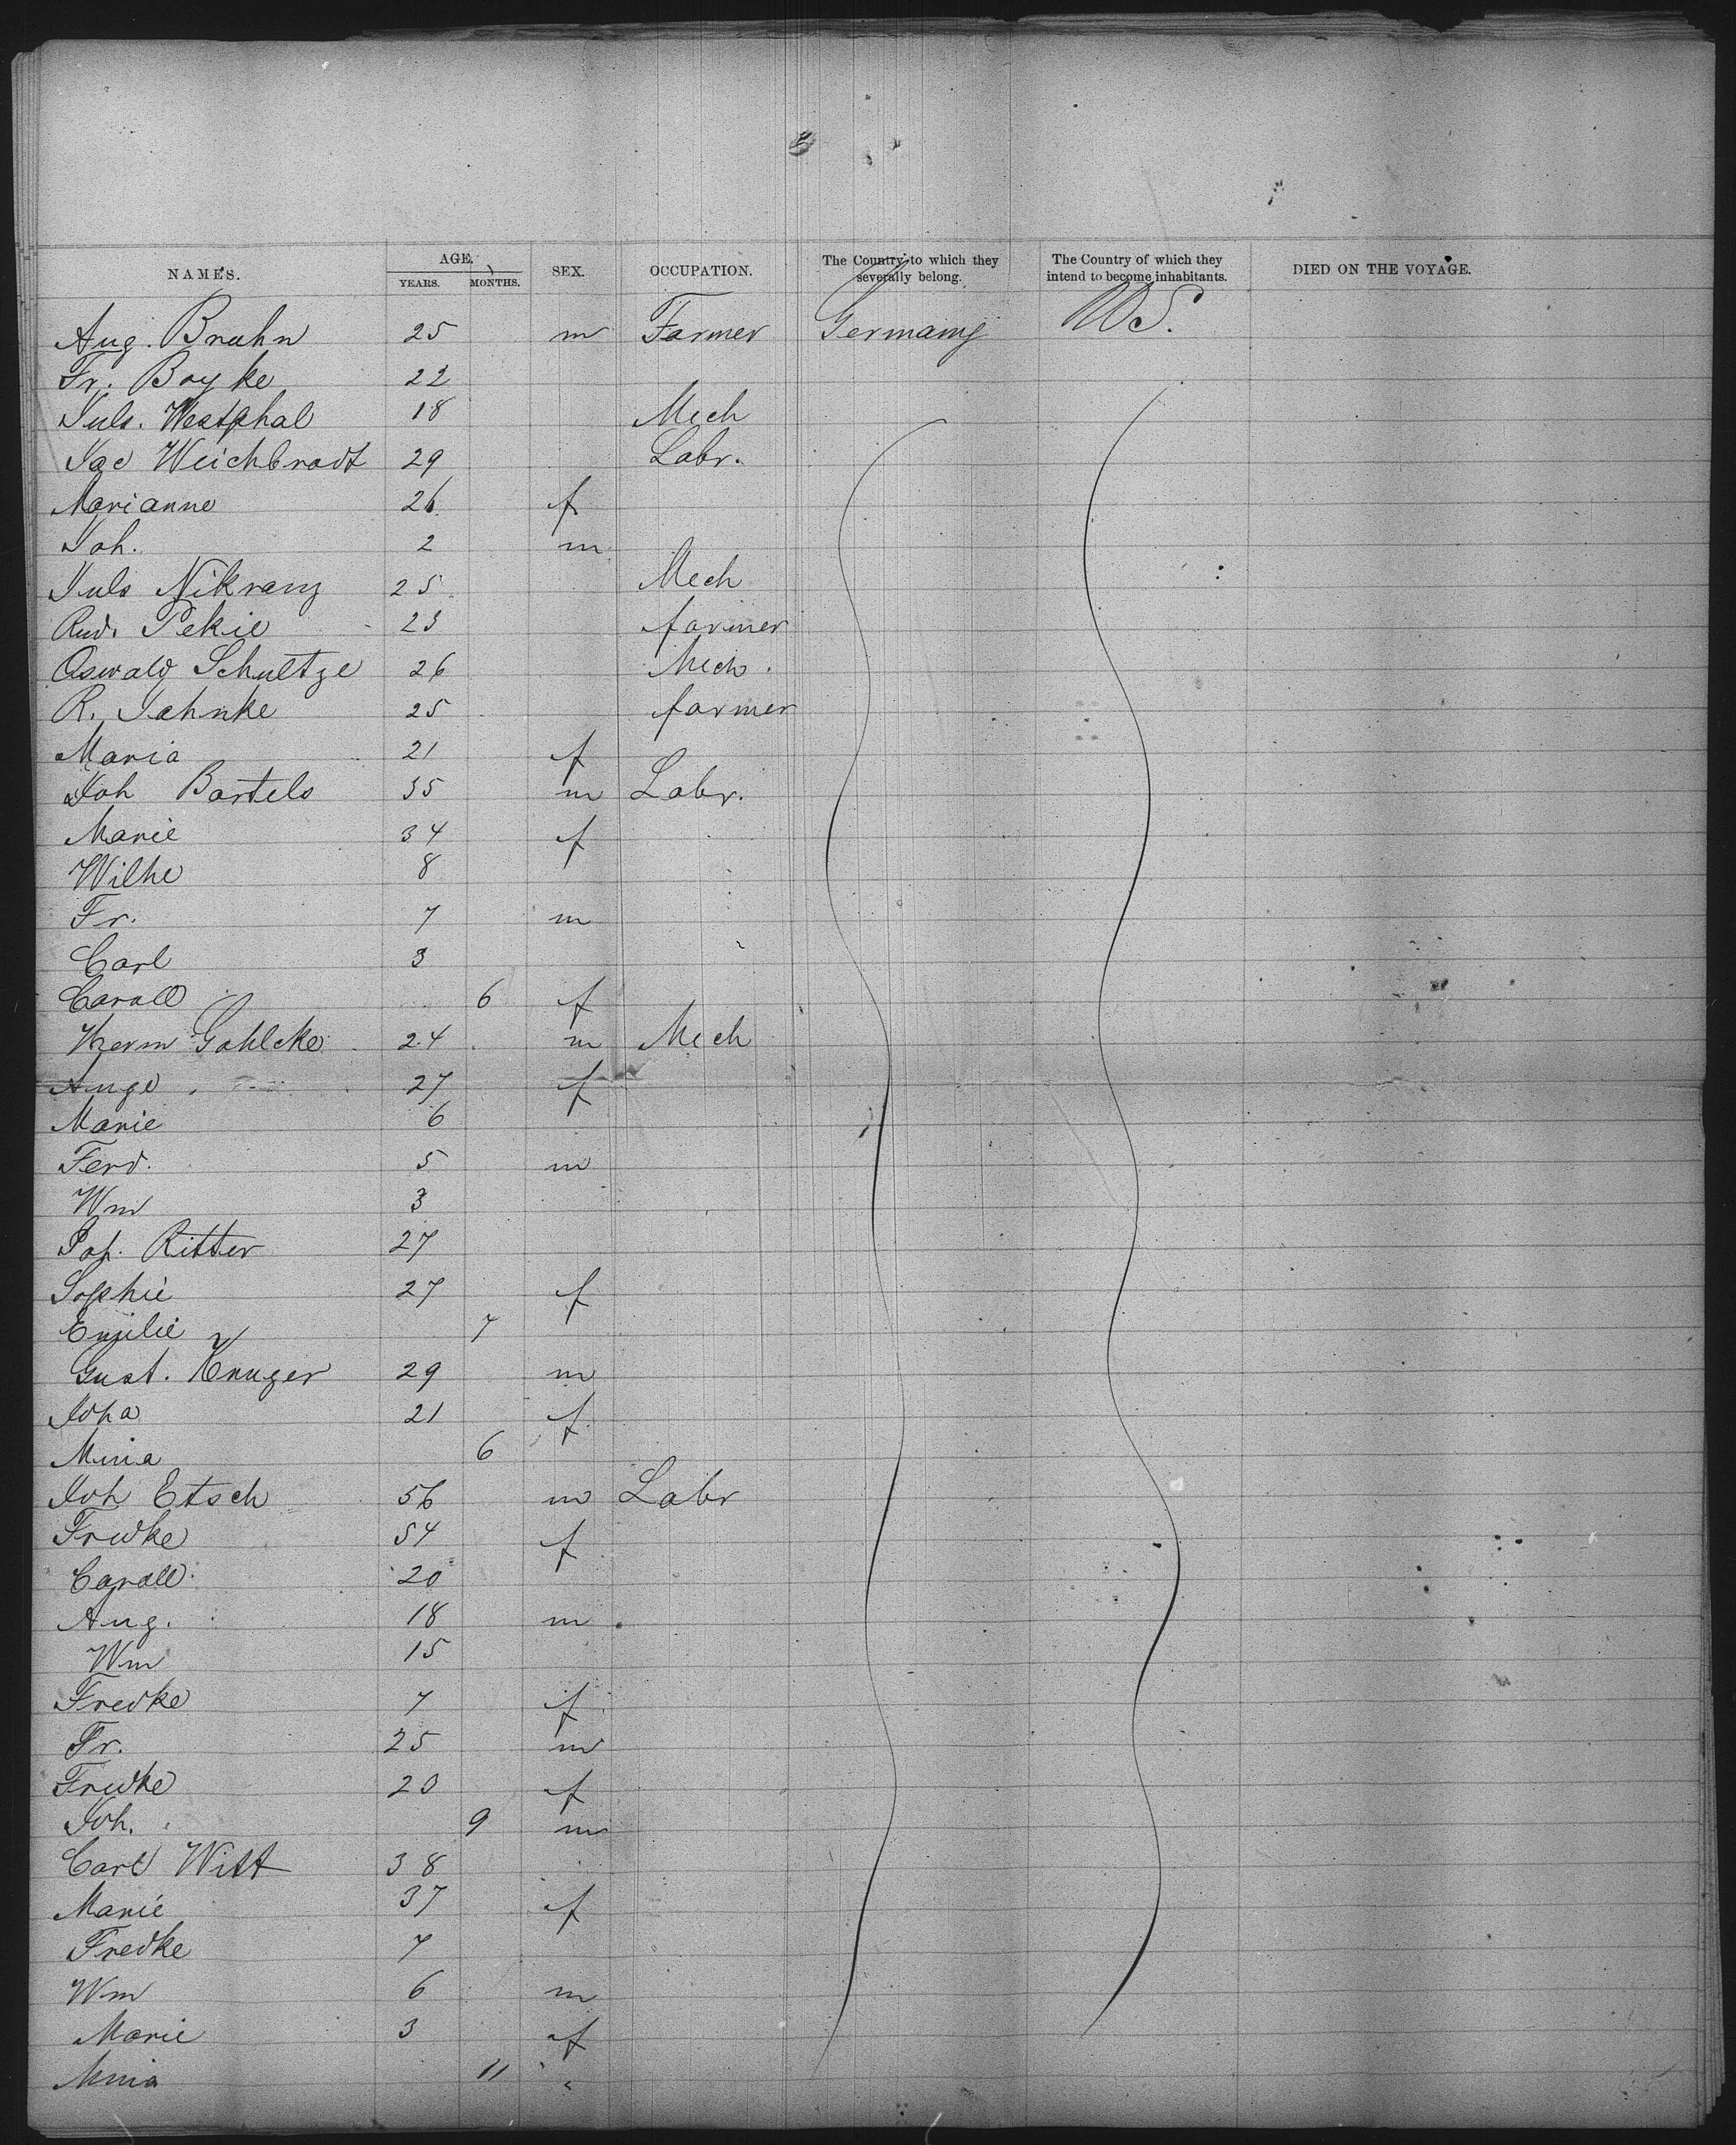 NAMES. AGE, YEARS. MONTHS. SEX. OCCUPATION. The Country to which they severally belong. The Country of which they intend to become inhabitants. DIED ON THE VOYAGE.
Aug. Bruhn 25 m Farmer Germany US.
Fr. Boyke 22
Juls. Westphal 18 Mech
Jac Weichbrodt 29 Labr.
Marianne 26 f
Joh. 2 m
Juls Nikranz 25 Mech
Rud. Pekie 23 farmer
Oswald Schultze 26 Mech.
R. Jahnke 25 farmer
Maria 21 f
Joh Bartels 35 m Labr.
Marie 34 f
Wilhe 8
Fr. 7 m
Carl 3
Caroll 6 f
Herm Gohlcke 24 m Mech
Auge 27 f
Marie 6
Ferd. 5 m
Wm 3
Joh. Ritter 27
Sophie 27 f
Emilie 7
Gust. Kruger 29 m
Joha 21 f
Mina 6
Joh Etsch 56 m Labr
Fredke 54 f
Caroll 20
Aug. 18 m
Wm 15
Fredke 7 f
Fr. 25 m
Fredke 20 f
Joh. 9 m
Carl Witt 38
Marie 37 f
Fredke 7
Wm 6 m
Marie 3 f
Mina 11 "